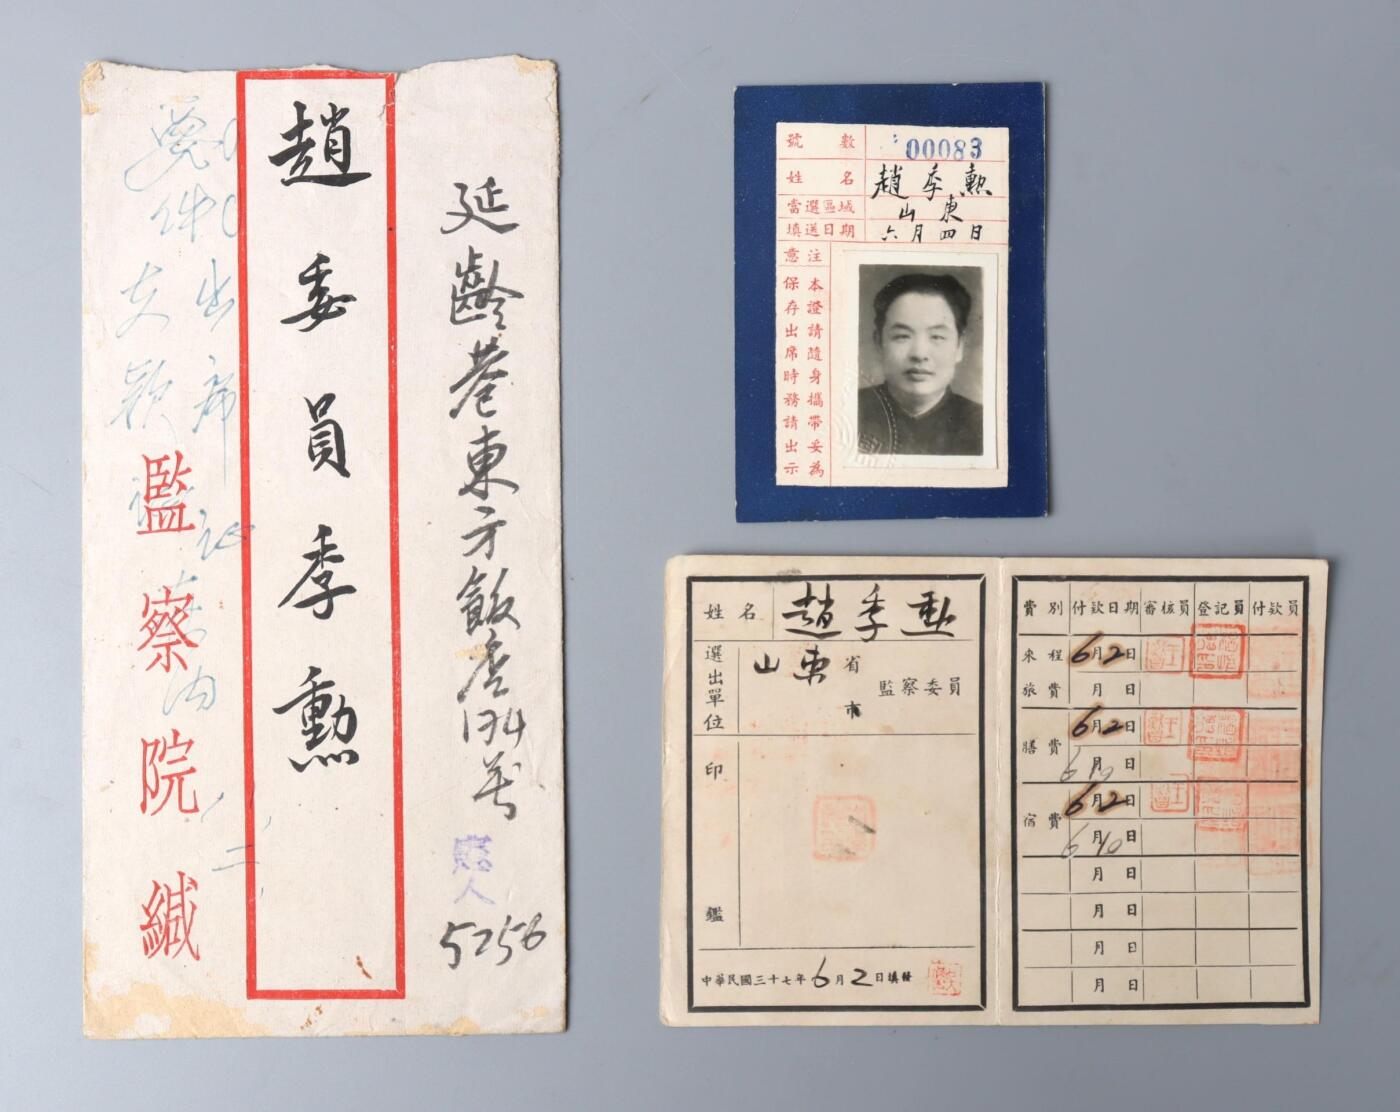 延齡巷東方飯店174号
5256
趙委員季勳
要件
出席证
支款
内
監察院緘
號數 00083
姓名 趙季勲
當選區域 山東
填送日期 六月四日
注意
本證請隨身攜帶妥為
保存出席時務請出示
姓名 趙季勳
選出單位 山東省市監察委員
印鑑
中華民國三十七年6月2日填發
費別 付款日期 審核員 登記員 付款員
來程旅費 6月2日
月日
膳費 6月2日
6月10日
宿費 6月2日
6月10日
月日
月日
月日
月日